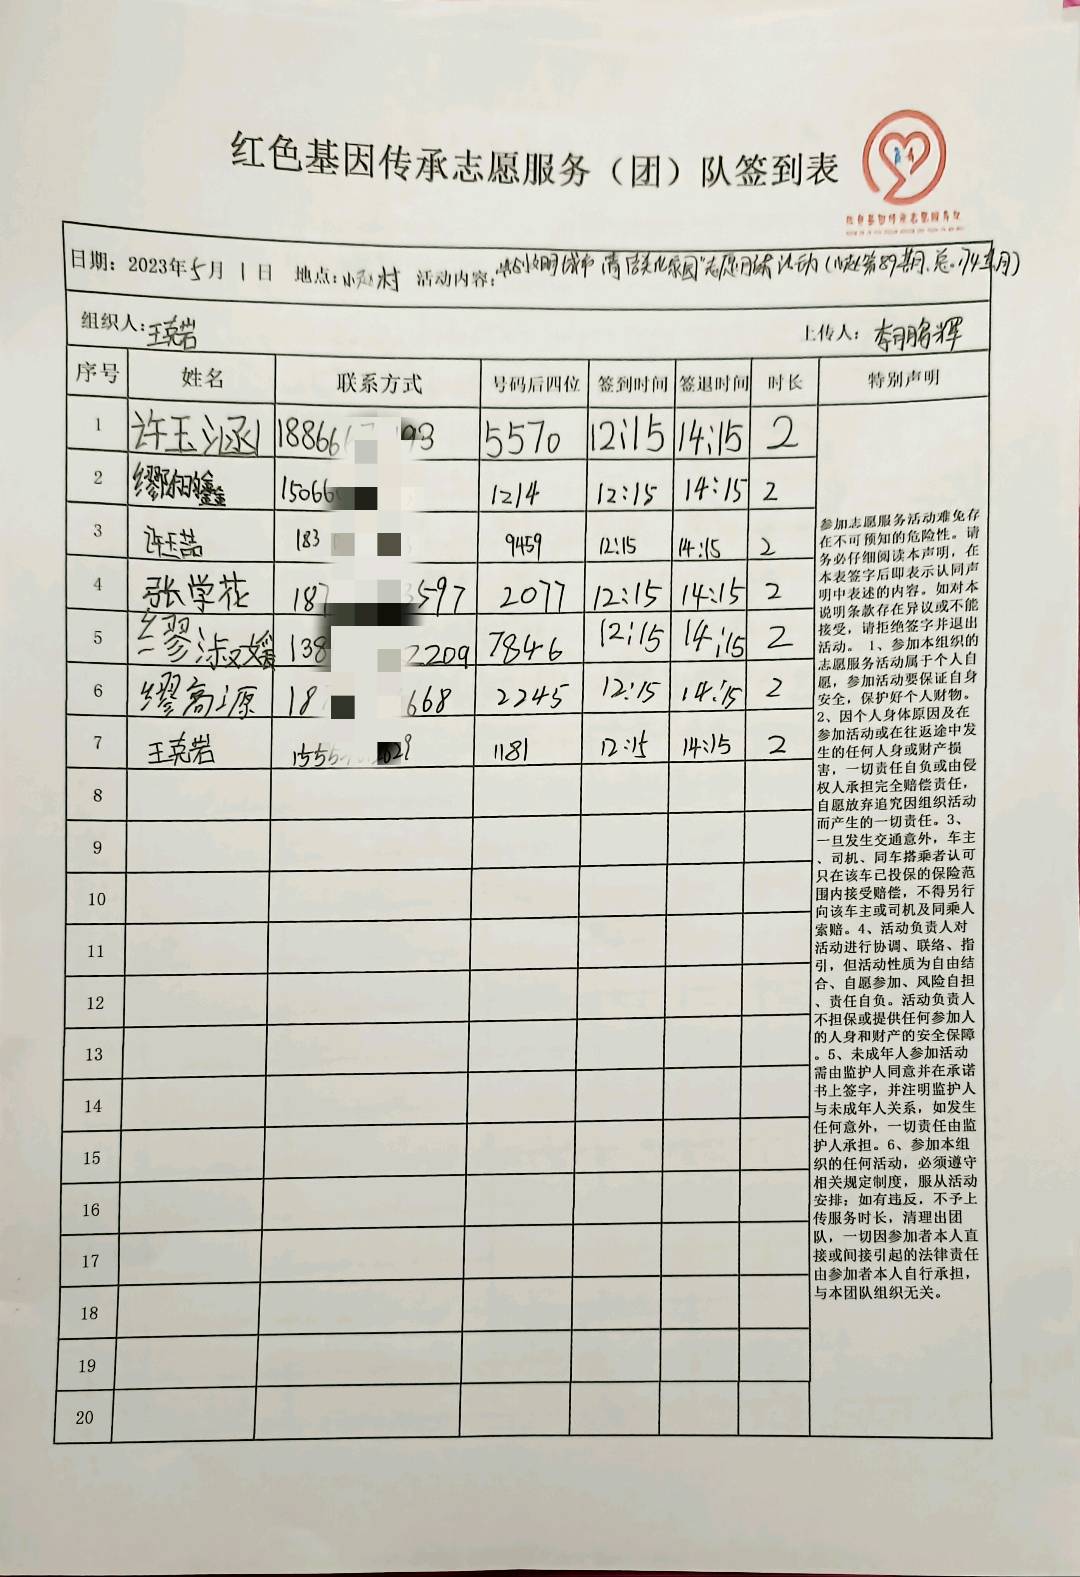 红色基因传承志愿服务（团）队签到表
日期：2023年5月1日 地点：小赵村 活动内容：
组织人：王克岩 上传人：李鹏辉
序号 姓名 联系方式 号码后四位 签到时间 签退时间 时长 特别声明
1 许玉涵 18866 93 5570 12:15 14:15 2
2 缪翔鑫 15066 1214 12:15 14:15 2
3 许玉喆 183 9459 12:15 14:15 2
4 张学花 187 3597 2077 12:15 14:15 2
5 缪淑媛 138 2209 7846 12:15 14:15 2
6 缪高源 187 668 2245 12:15 14:15 2
7 王克岩 1555 629 1181 12:15 14:15 2
8
9
10
11
12
13
14
15
16
17
18
19
20
参加志愿服务活动难免存
在不可预知的危险性。请
务必仔细阅读本声明，在
本表签字后即表示认同声
明中表述的内容。如对本
说明条款存在异议或不能
接受，请拒绝签字并退出
活动。 1、参加本组织的
志愿服务活动属于个人自
愿，参加活动要保证自身
安全，保护好个人财物。
2、因个人身体原因及在
参加活动或在往返途中发
生的任何人身或财产损
害，一切责任自负或由侵
权人承担完全赔偿责任，
自愿放弃追究因组织活动
而产生的一切责任。3、
一旦发生交通意外，车主
、司机、同车搭乘者认可
只在该车已投保的保险范
围内接受赔偿，不得另行
向该车主或司机及同乘人
索赔。4、活动负责人对
活动进行协调、联络、指
引，但活动性质为自由结
合、自愿参加、风险自担
、责任自负。活动负责人
不担保或提供任何参加人
的人身和财产的安全保障
。5、未成年人参加活动
需由监护人同意并在承诺
书上签字，并注明监护人
与未成年人关系，如发生
任何意外，一切责任由监
护人承担。6、参加本组
织的任何活动，必须遵守
相关规定制度，服从活动
安排；如有违反，不予上
传服务时长，清理出团
队，一切因参加者本人直
接或间接引起的法律责任
由参加者本人自行承担，
与本团队组织无关。